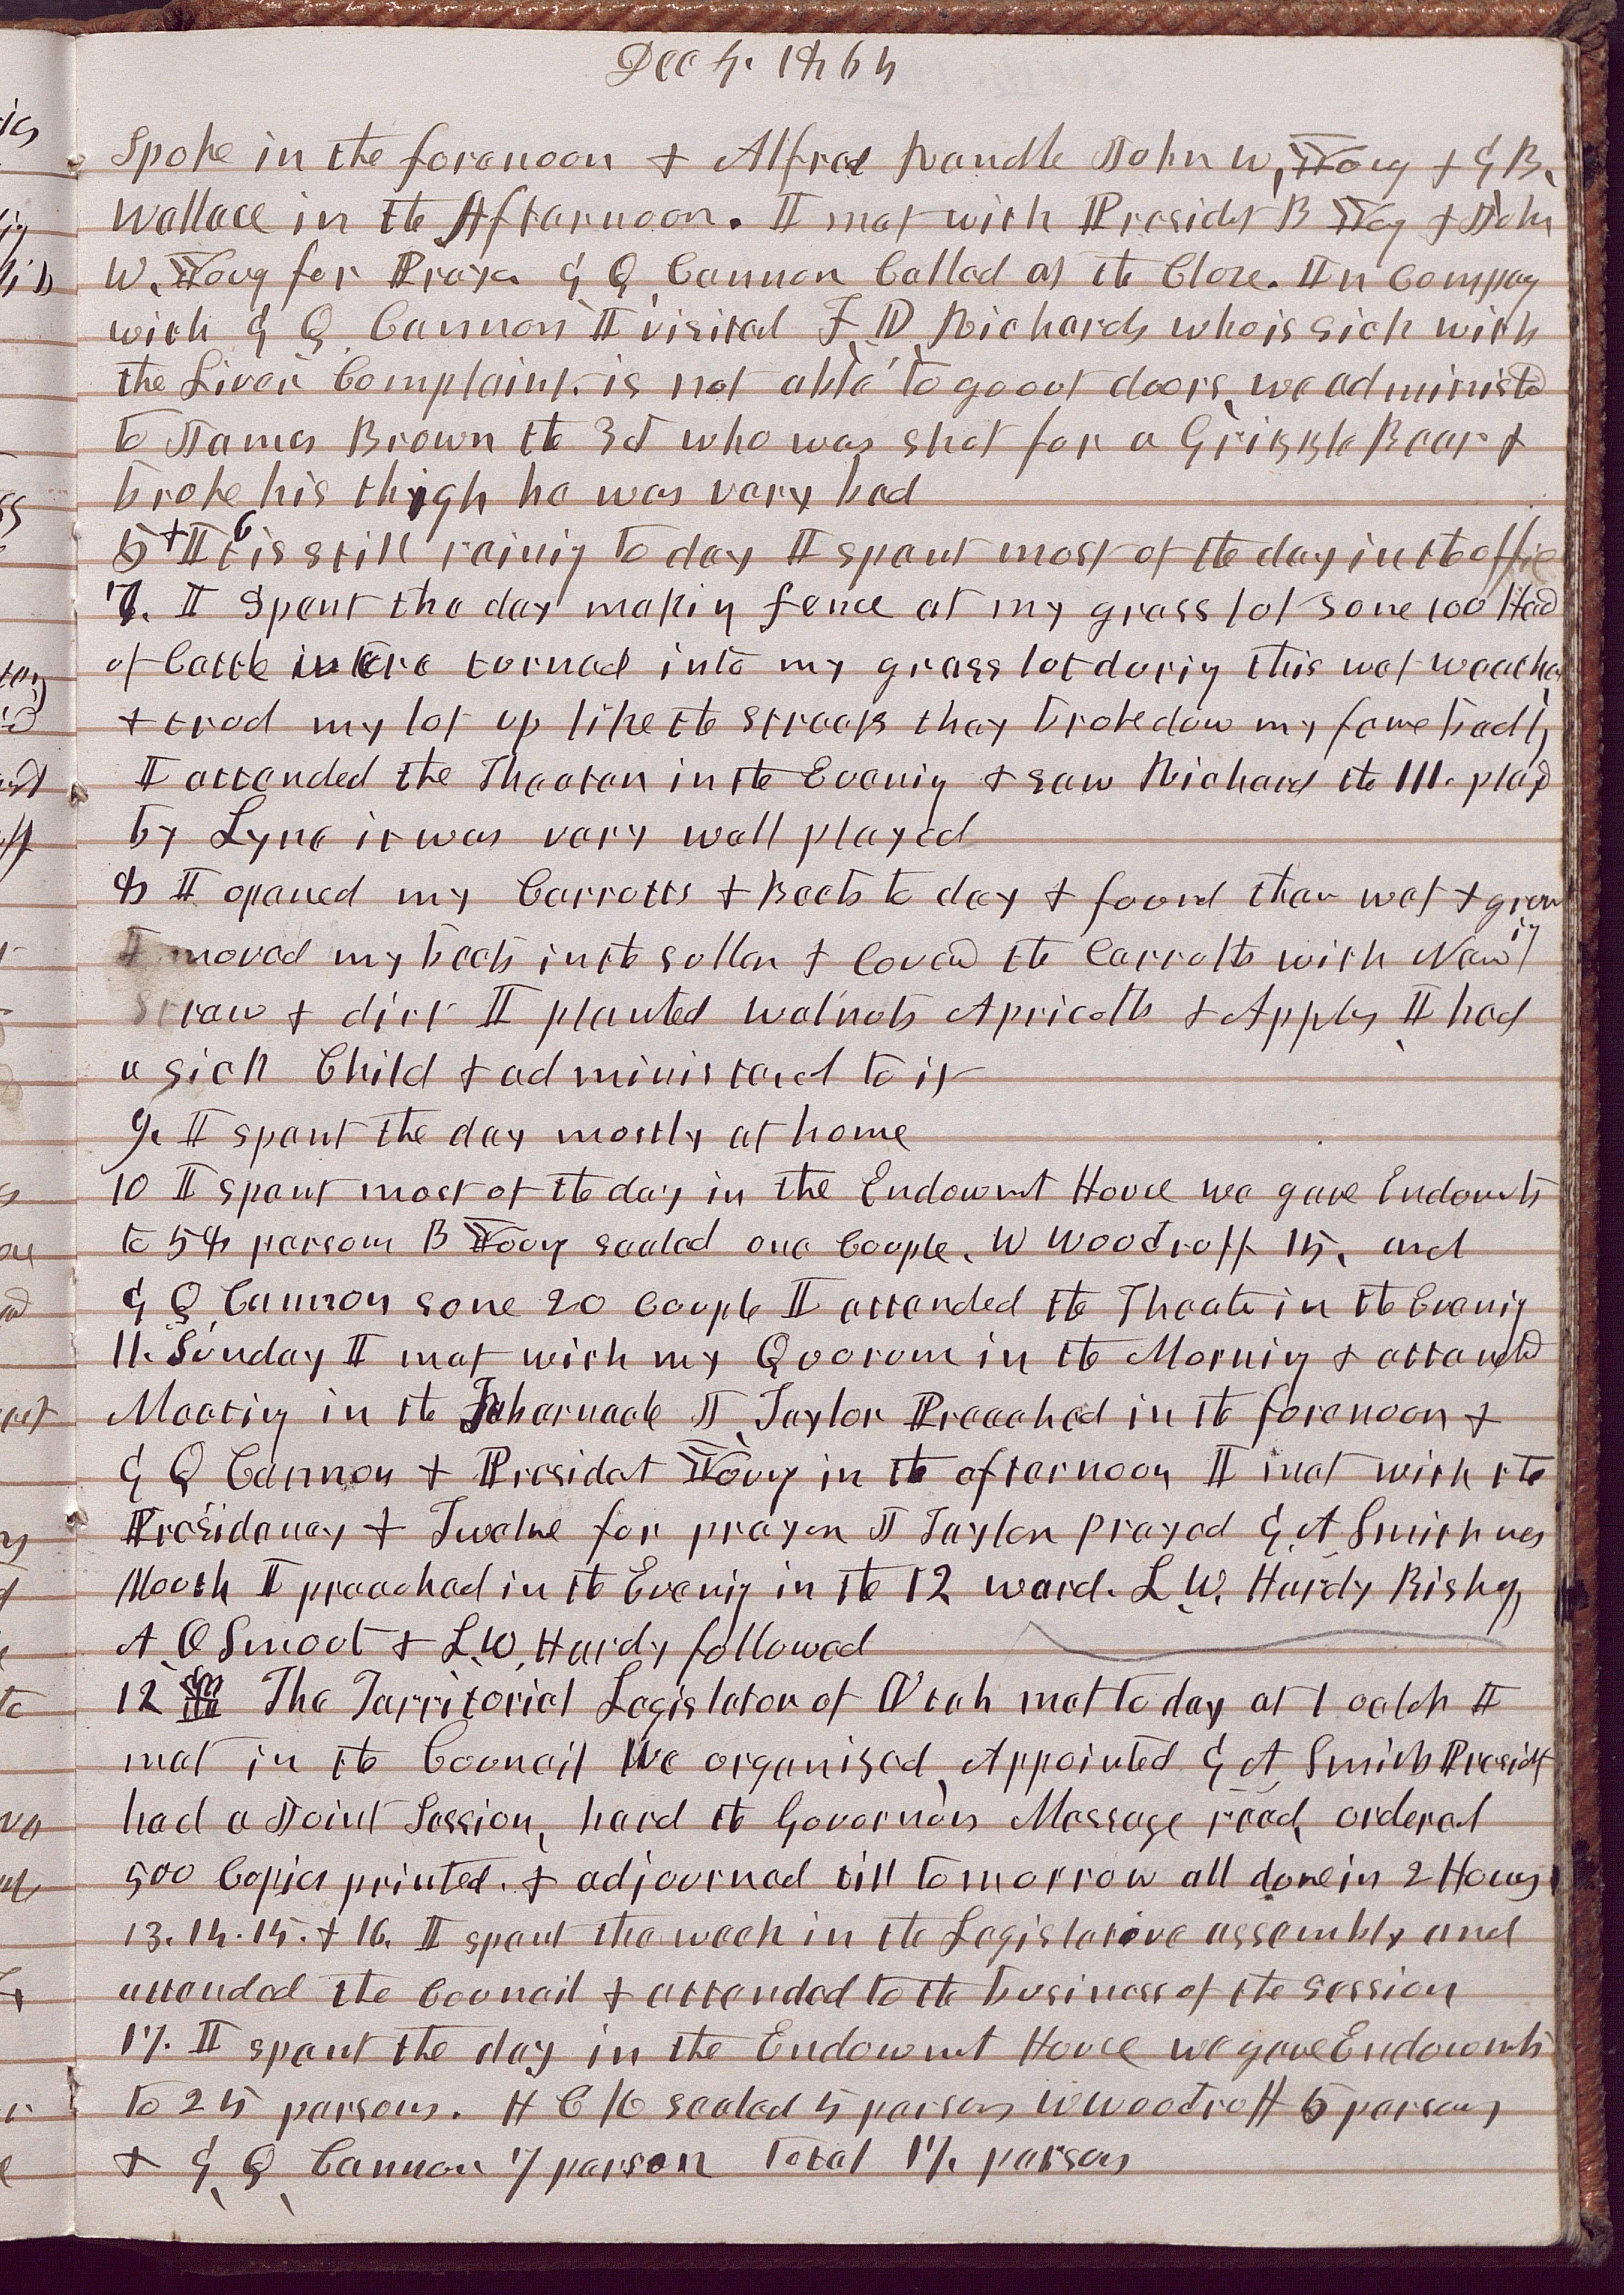 Dec 4. 1864
Spoke in the forenoon & Alfred Randle John W, Young & G B.
Wallace in the Afternoon. I met with Presidet B Yog & John
W. Young for Prayer G Q Cannon Called at the Close. In Compay
with G Q Cannon I visited F. D. Richards who is sick with
the Liver Complaint. is not able to go out doors, we administd
to James Brown the 3d who was shot for a Grizzle Bear &
broke his thigh he was very bad
5 & 6 It is still rainig to day I spent most of the day in the office
7. I Spent the day makin fence at my grass lot some 100 Head
of Cattle were turned into my grass lot durig this wet weather
& trod my lot up like the streets they broke dow my fence badly
I attended the Theater in the Evenig & saw Richard the III. playd
by Lyne it was very well played
8 I opened my Carrotts & Beets to day & found them wet & growig
I moved my beets in the sellar & Coved the Carrotts with New
Straw & dirt I planted walnuts Apricotts & Apples, I had
a sick Child & administered to it
9. I spent the day mostly at home
10 I spent most of the day in the Endowmt House we gave Endowmts
to 58 persons B Young sealed one Couple. W Woodruff 15. and
G Q Cannon some 20 Couple I attended the Theate in the Evenig
11. Sunday I met with my Quorum in the Mornig & attended
Meetig in the Tabernacle J Taylor Preached in the forenoon &
G Q Cannon & Presidet Young in the afternoon I met with the
Presidency & Twelve for prayer J Taylor Prayed G. A Smith was
Mouth I preached in the Evenig in the 12 ward. L. W. Hardy Bishop
A O Smoot & L. W. Hardy followed
12 The Territorial Legislator of Utah met to day at 1 oclok I
met in the Council We organised, Appointed G A Smith Presidt
had a Joint Session, hard the Governors Message read, ordered
500 Copies printed. & adjourned till tomorrow all done in 2 Hours
13. 14. 15. & 16. I spent the week in the Legislative assembly and
attended the Council & attended to the business of the Session
17. I spent the day in the Endowmt House we gave Endowmts
to 25 persons. H C K sealed 5 persons W Woodruff 5 persons
& G Q Cannon 7 person Total 17. persons